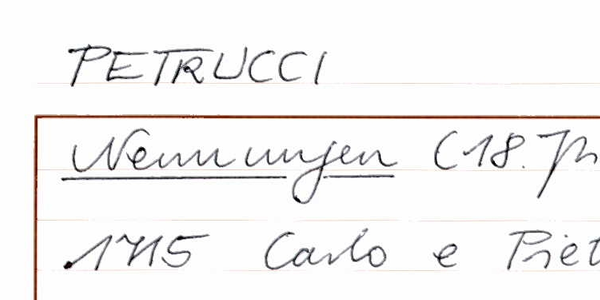 PETRUCCI
Nennungen (18. Jh
1715 Carlo e Piet